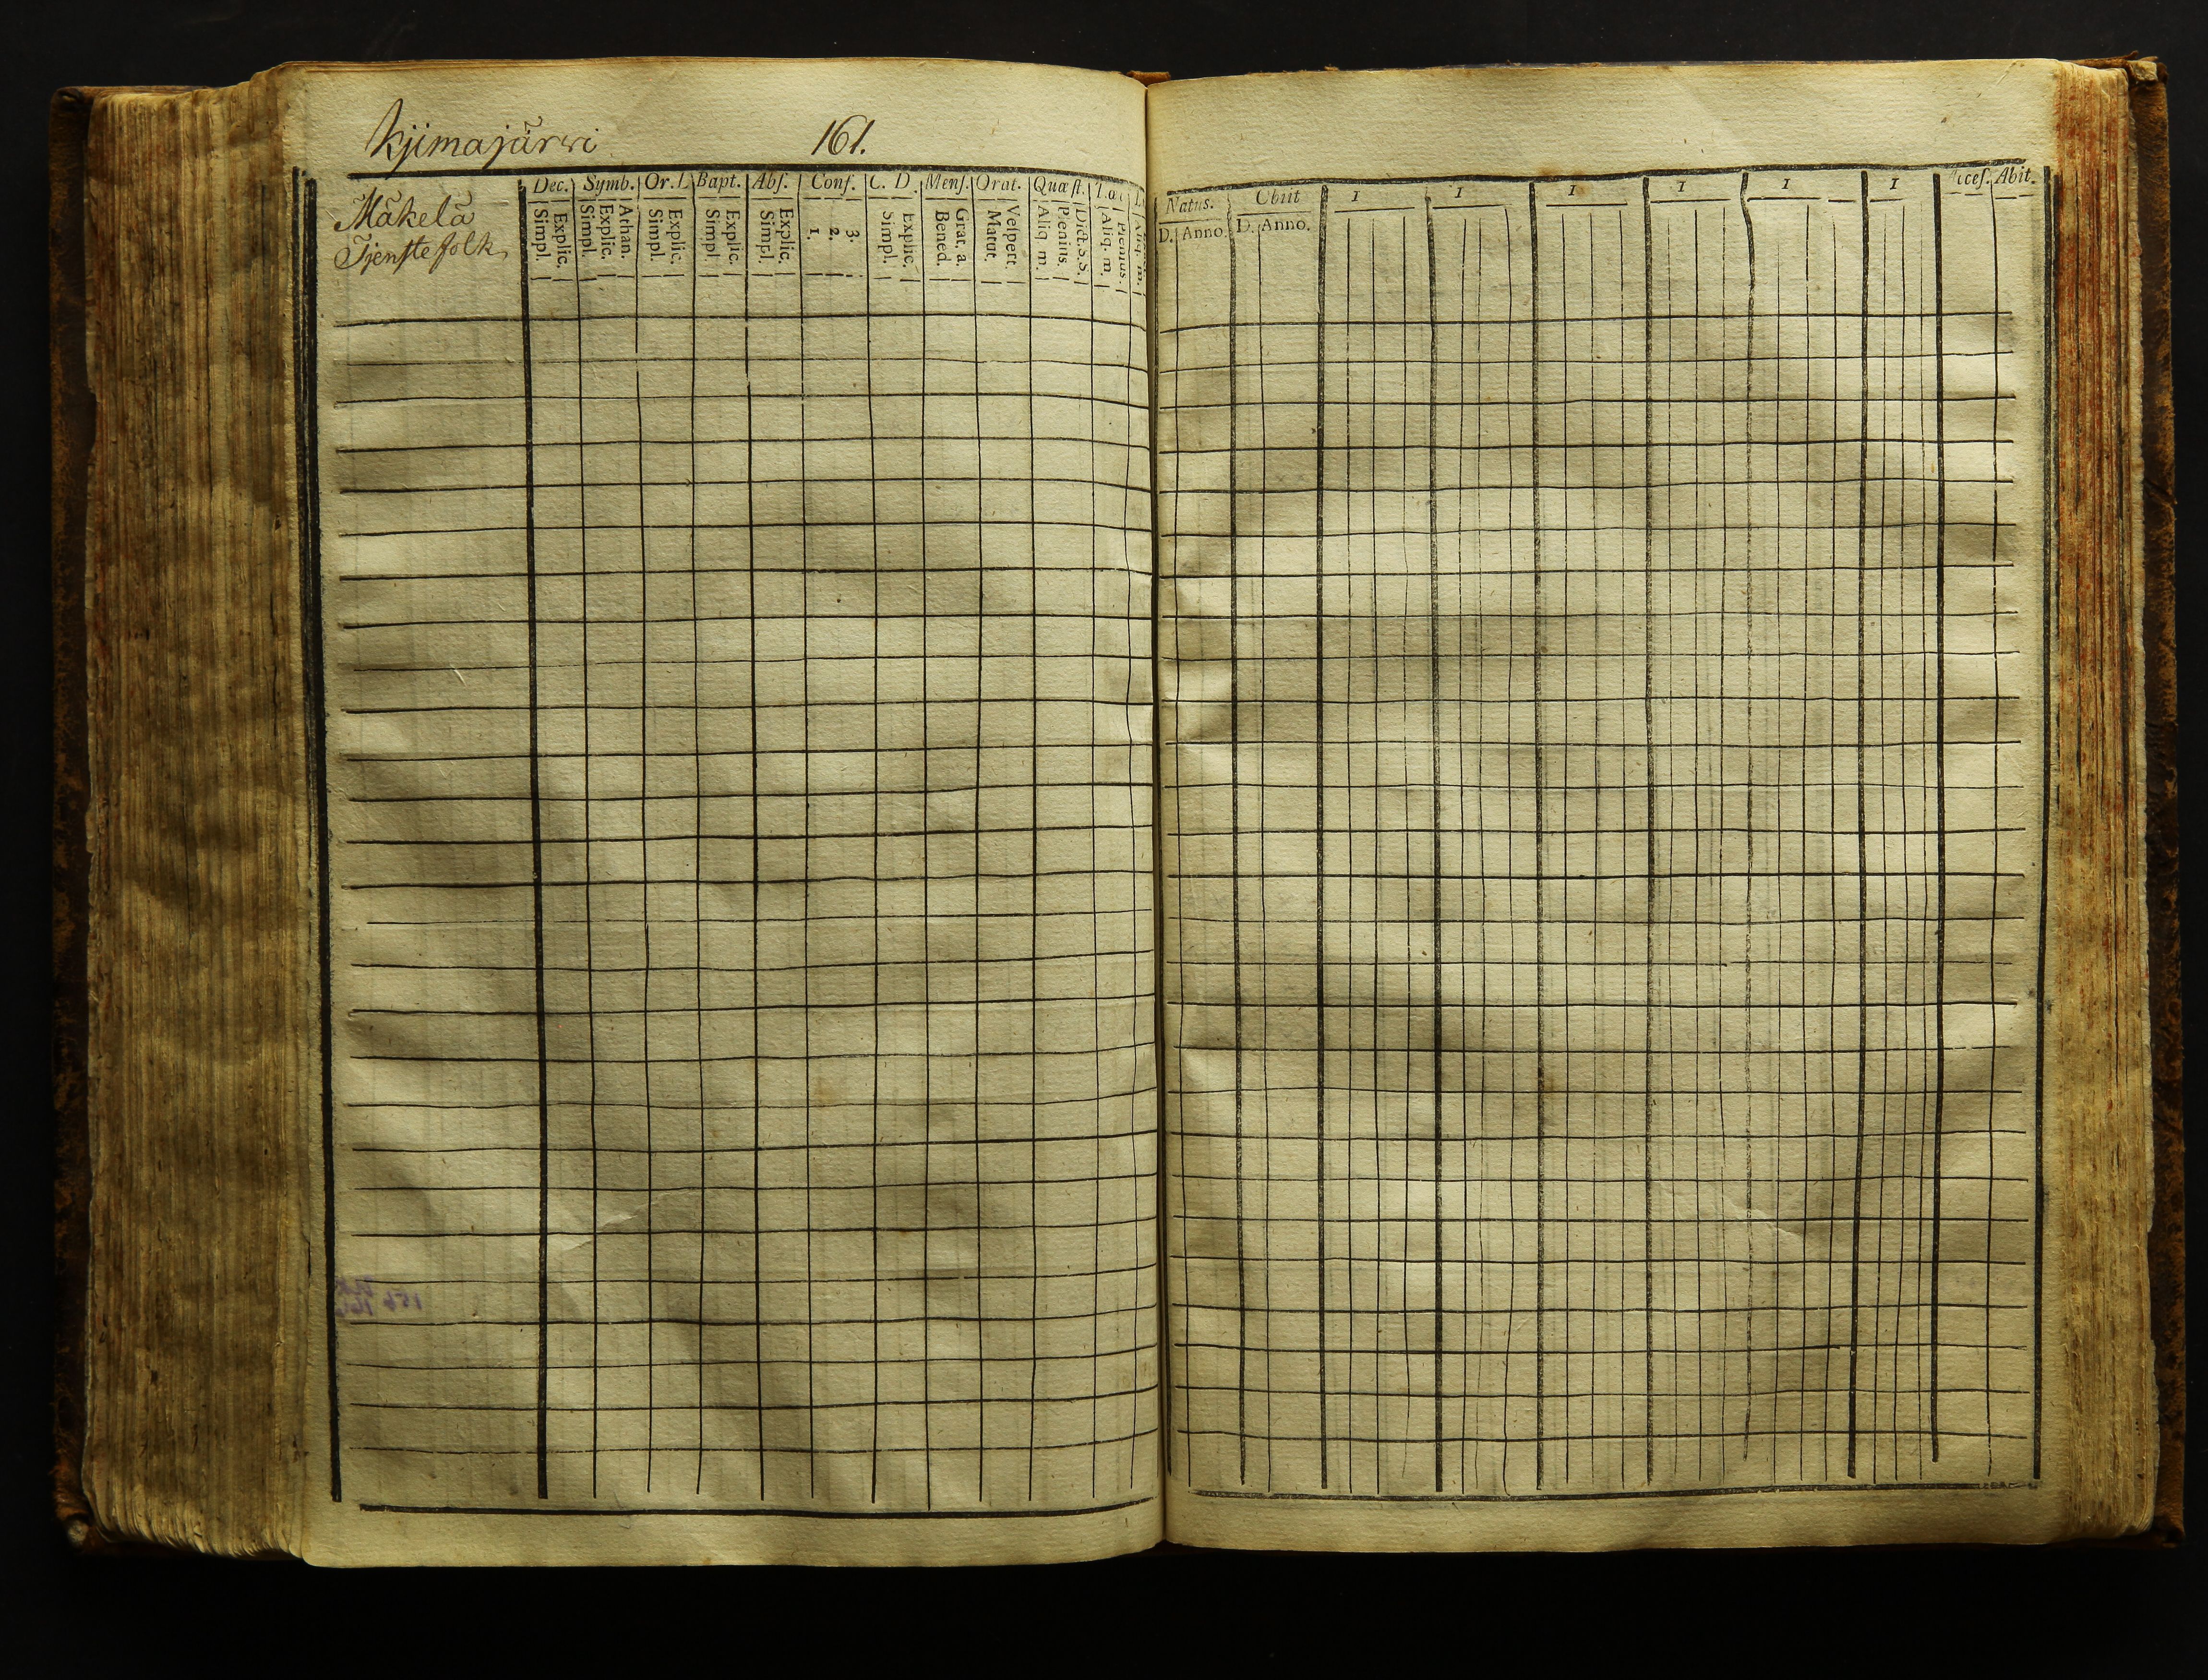 Kjimajärwi 161.
Mäkelä
Tjenstefolk
Dec. Symb. Or. D Bapt. Abſ. Conf. C. D. Menſ. Orat. Quæſt.
Simpl. Explic. Simpl. Explic. Athan. Simpl. Explic. Simpl. Explic. Simpl. Explic. 1. 2. 3. Simpl. Explic. Bened. Grat. a. Matut. Veſpert. Aliq. m. Plenius. Dict. S. S. Aliq. m. Plenius. Aliq. m.
Natus. Obiit 1 1 1 1 1 1 Acceſ. Abit.
D. Anno. D. Anno.